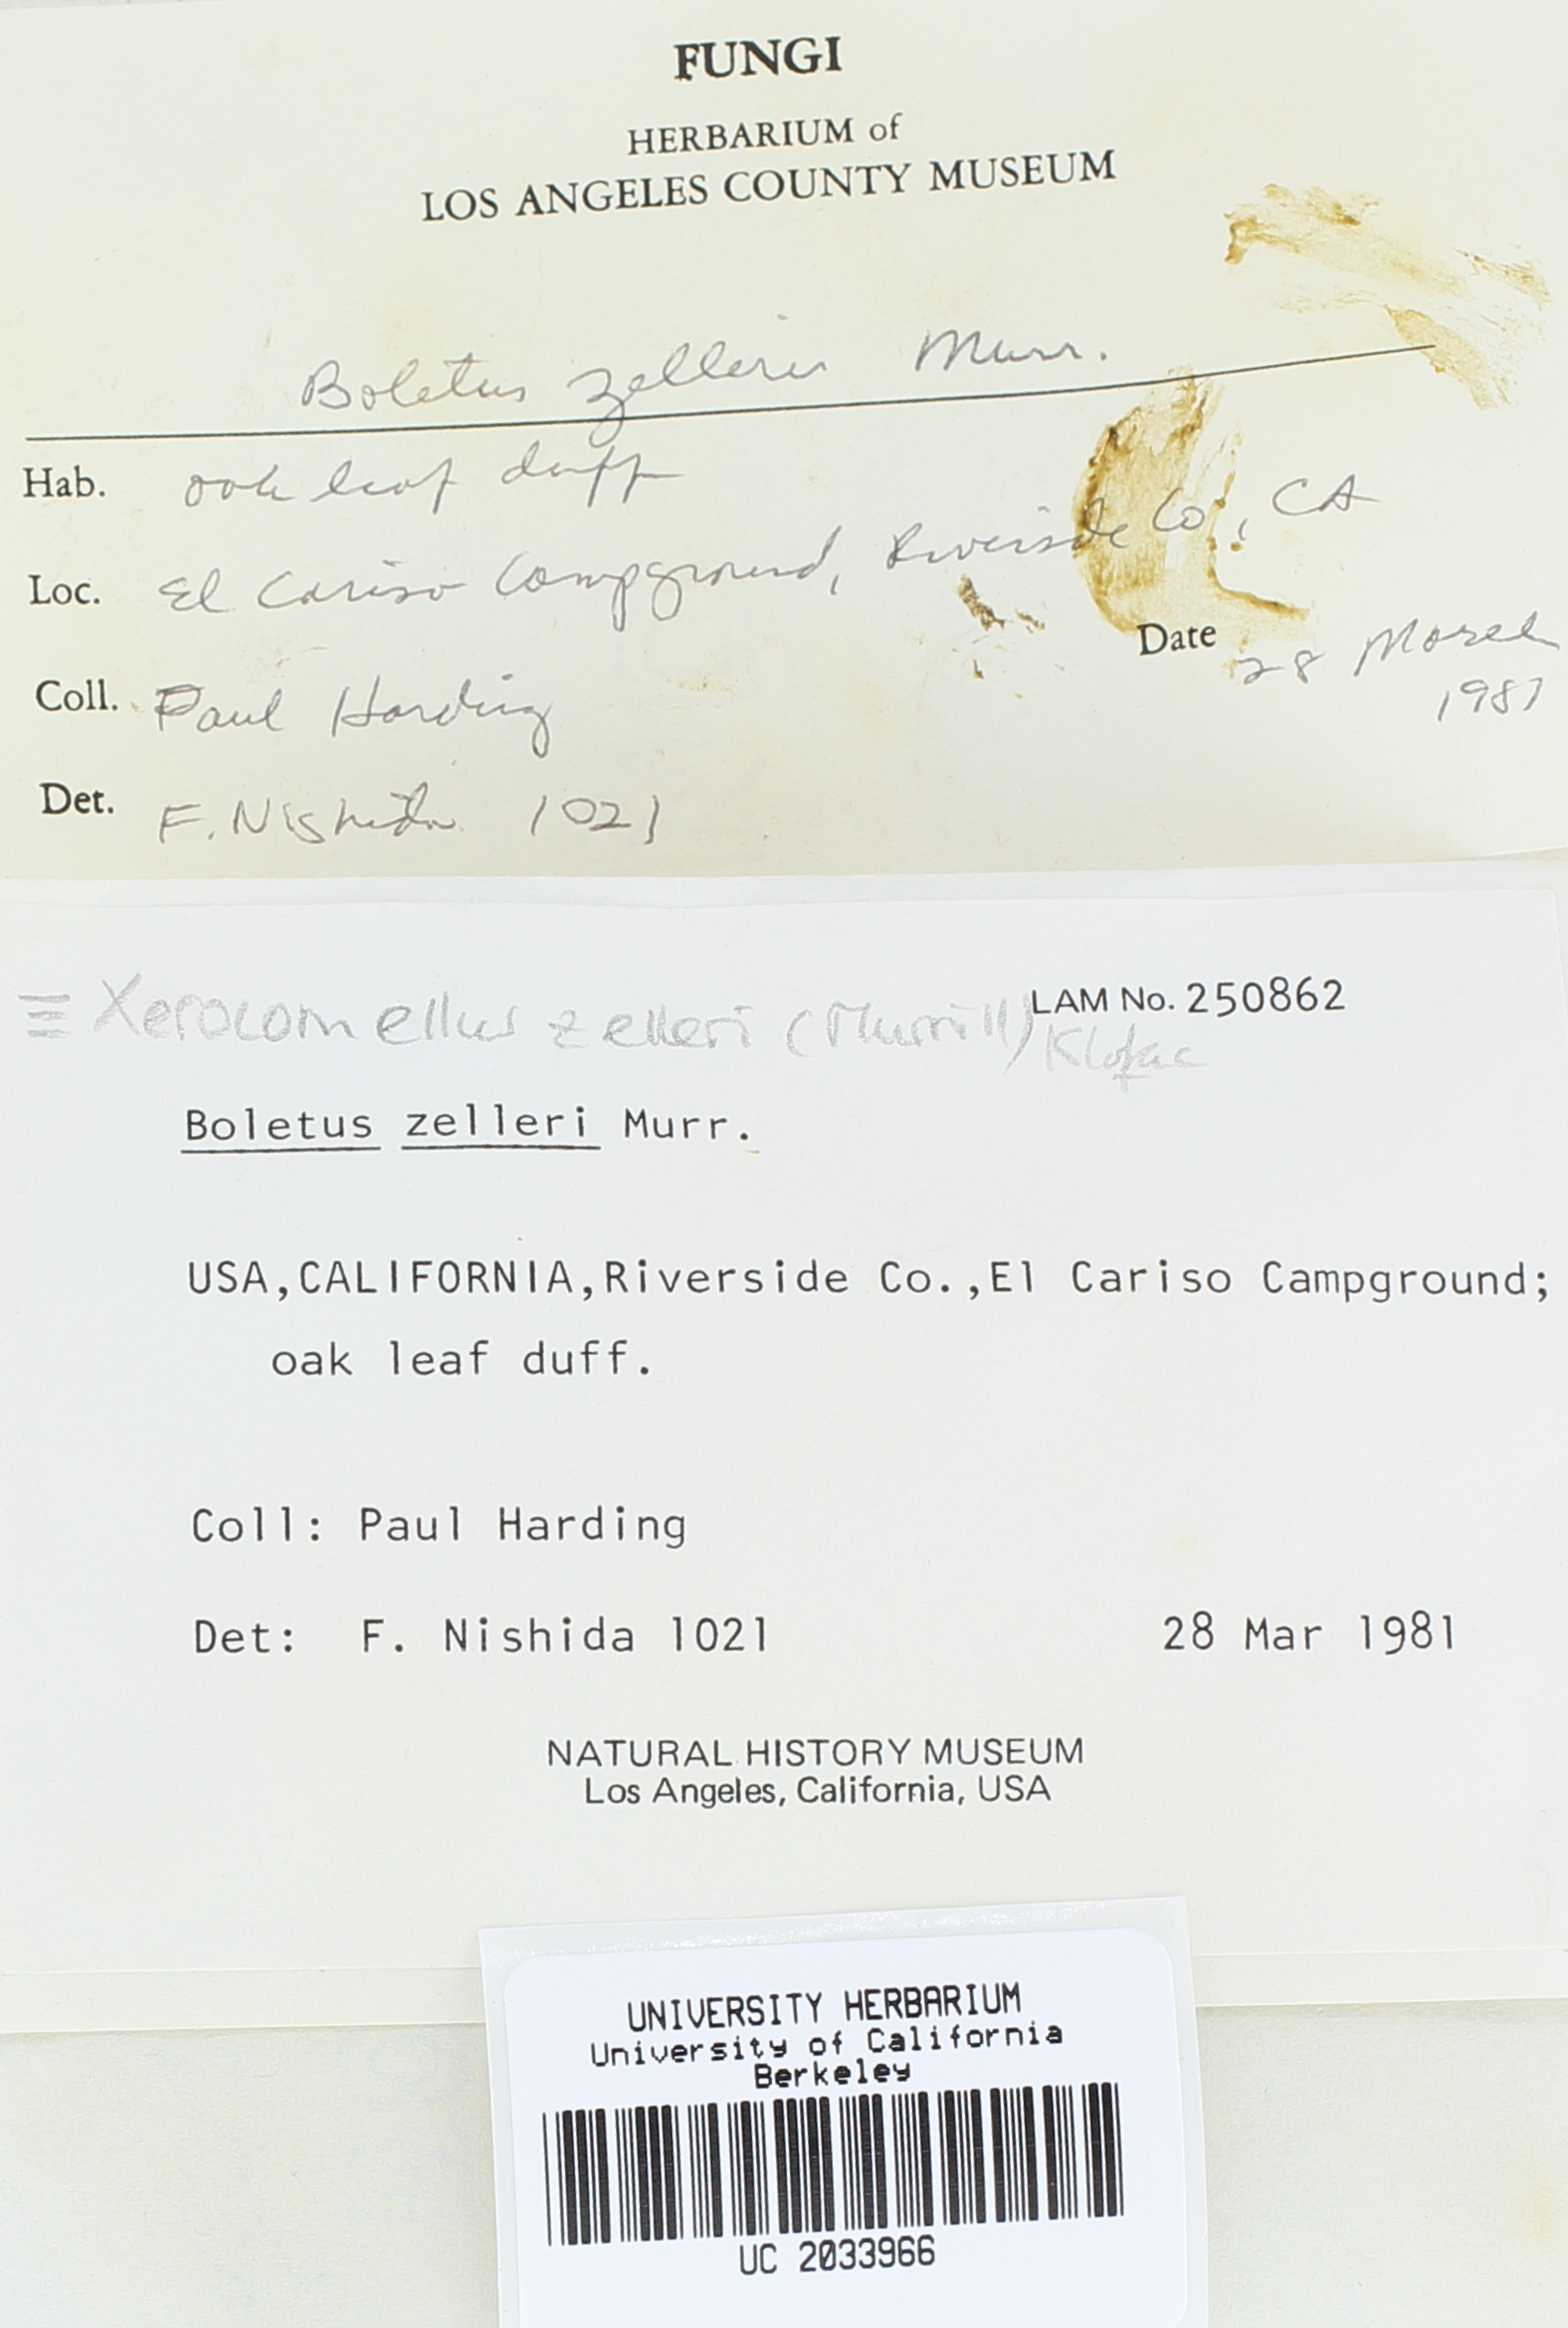 FUNGI
HERBARIUM of
LOS ANGELES COUNTY MUSEUM
Boletus zelleri Murr.
Hab. oak leaf duff
Loc. El Cariso Campground, Riverside Co., CA
Date 28 March
1981
Coll. Paul Harding
Det. F. Nishida 1021
LAM No. 250862
≡ Xerocomellus zelleri (Murrill) Klofac
Boletus zelleri Murr.
USA,CALIFORNIA,Riverside Co.,El Cariso Campground;
oak leaf duff.
Coll: Paul Harding
Det: F. Nishida 1021 28 Mar 1981
NATURAL HISTORY MUSEUM
Los Angeles, California, USA
UNIVERSITY HERBARIUM
University of California
Berkeley
UC 2033966